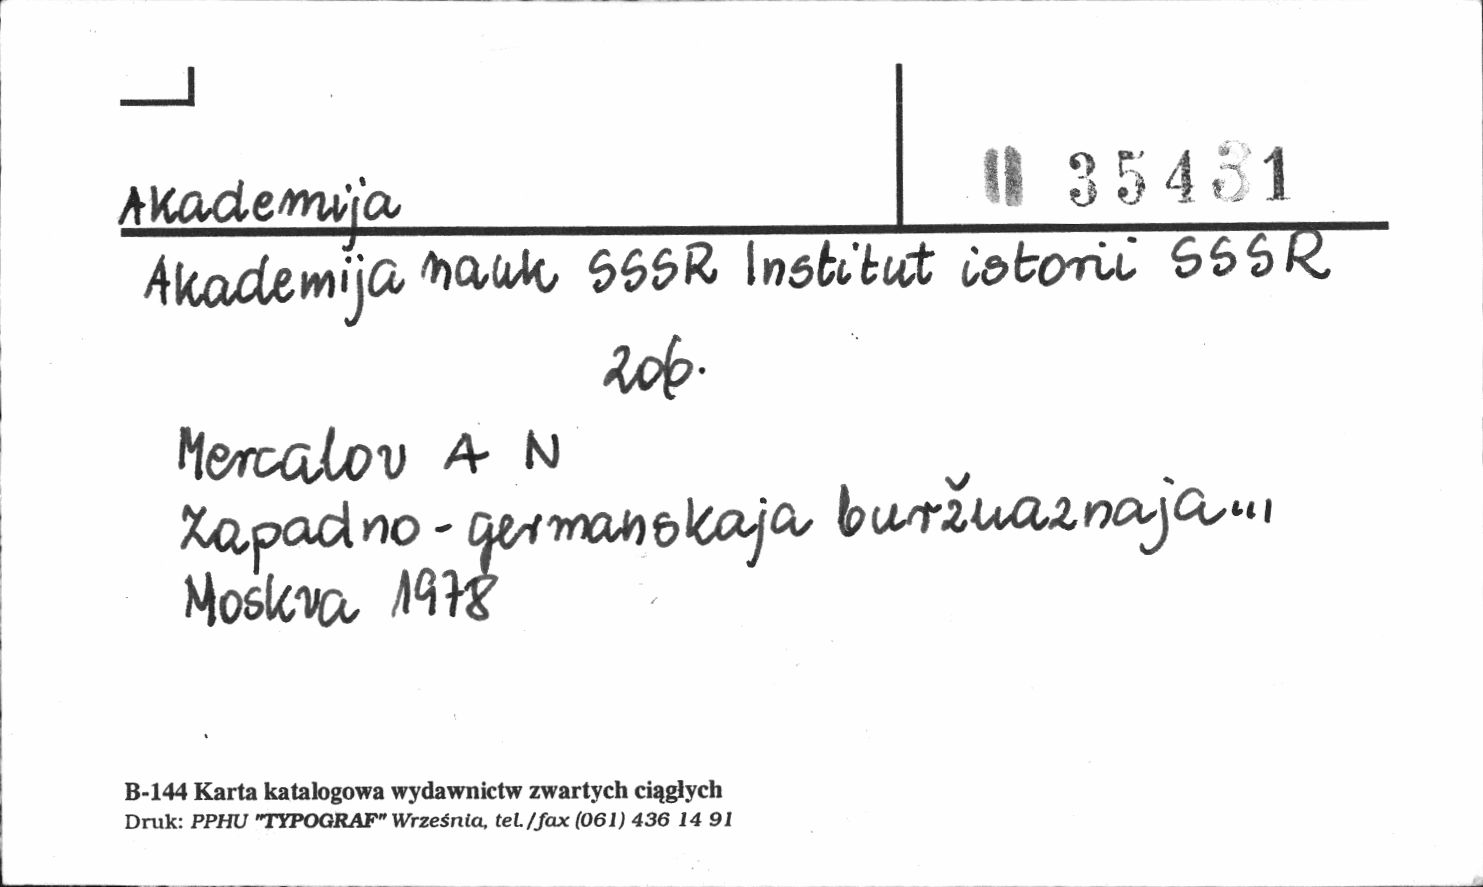 35431
Akademija
Akademija nauk SSSR Institut istorii SSSR
zob.
Mercalov A N
Zapadno-germanskaja buržuaznaja...
Moskva 1978
B-144 Karta katalogowa wydawnictw zwartych ciągłych
Druk: PPHU "TYPOGRAF" Września, tel./fax (061) 436 14 91